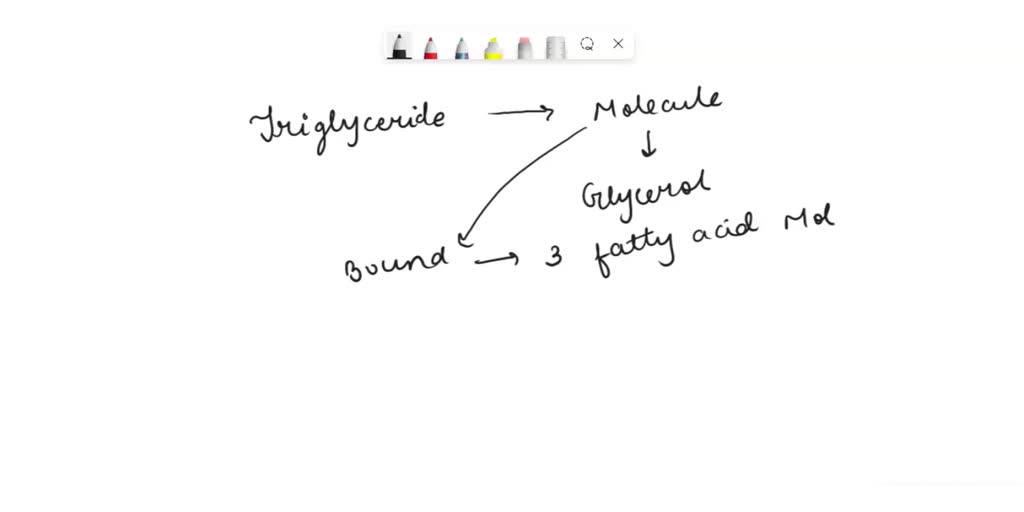 Triglyceride → Molecule
↓
Glycerol
Bound → 3 fatty acid Mol